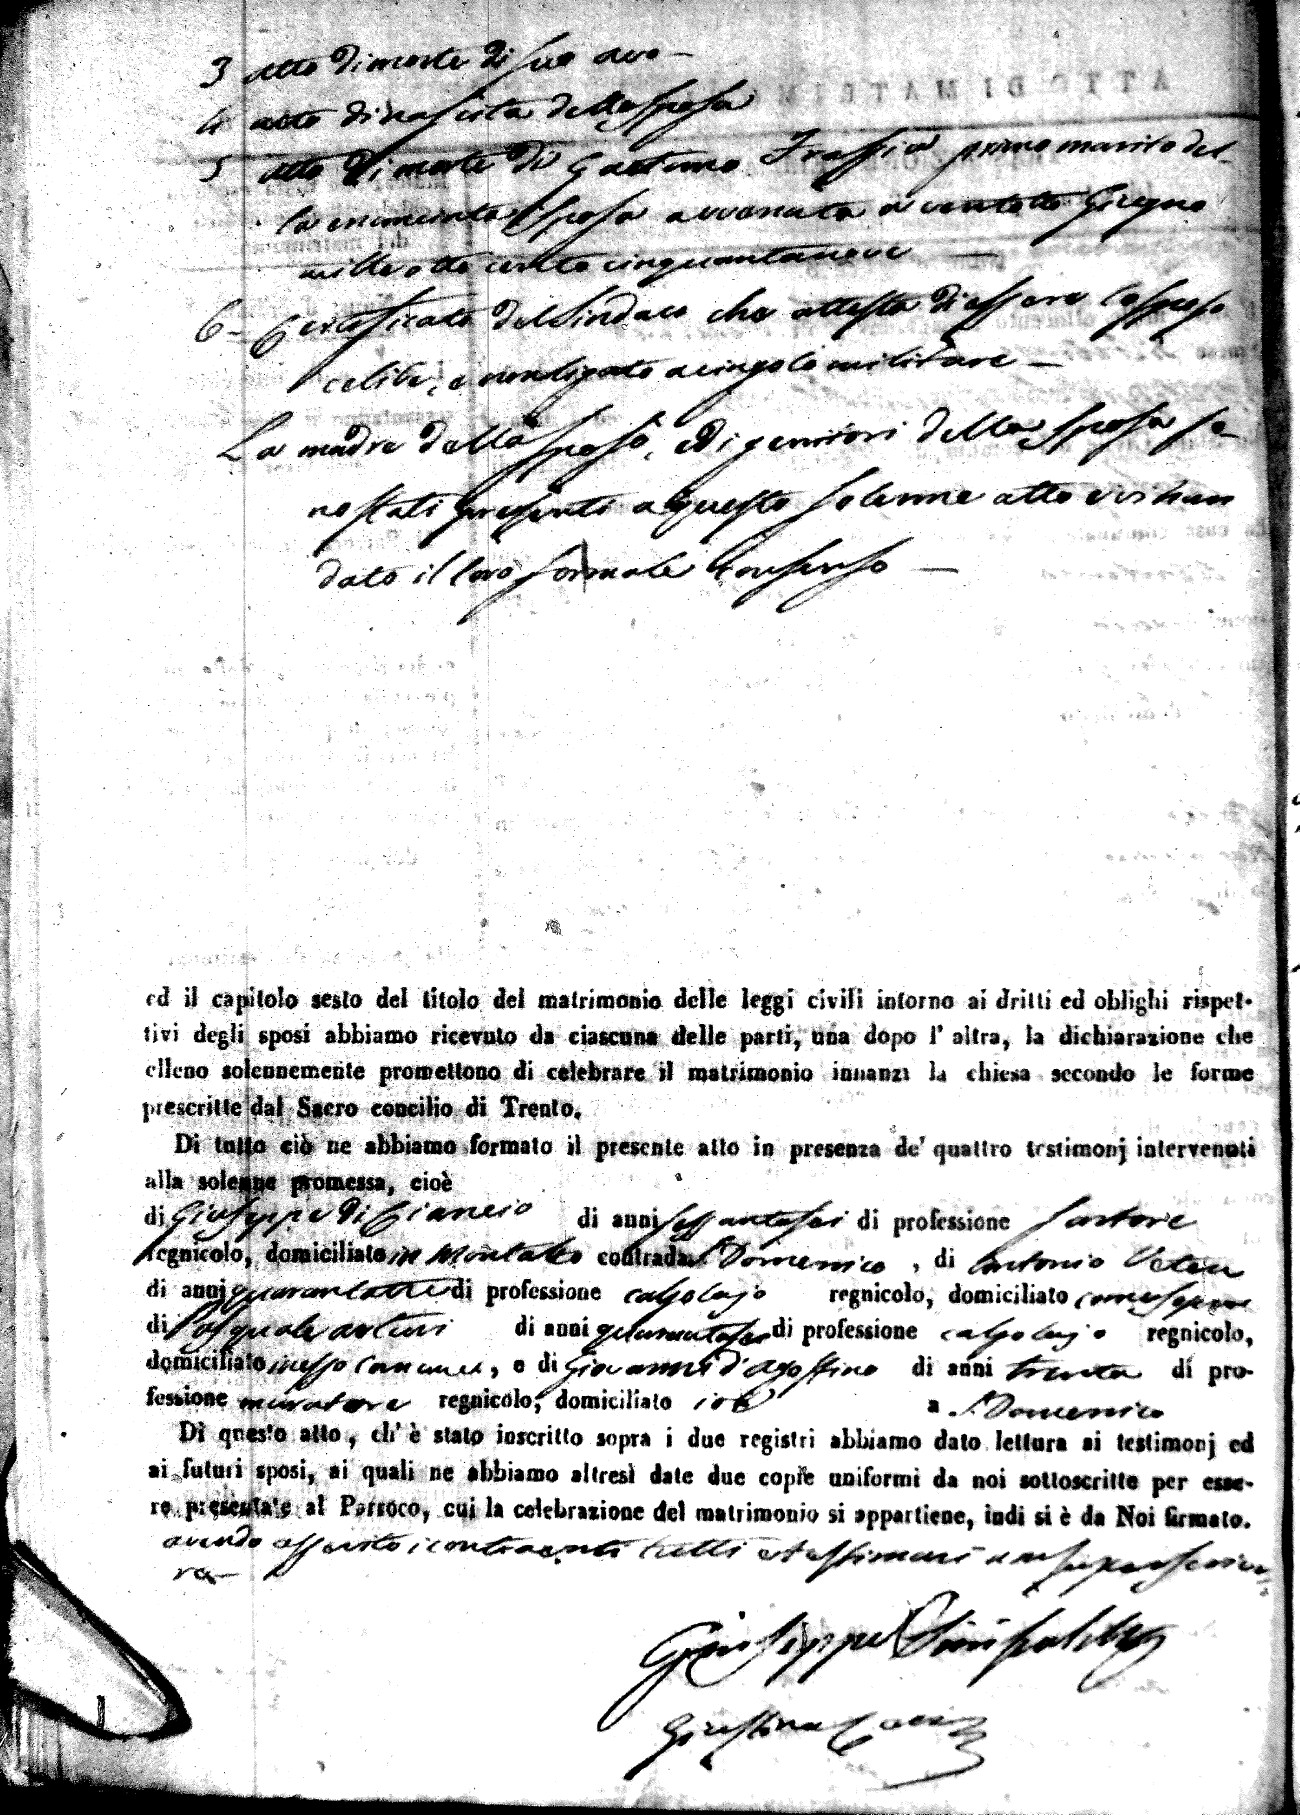 3 Atto di morte di suo avo —
4 atto di nascita della sposa
5 Atto di morte di Gaetano primo marito del-
la enunciata sposa avvenuta a ventotto Giugno
mille otto cento cinquantanove —
6 - Certificato del Sindaco che attesta di essere lo sposo
celibe, e non ligato a cingolo militare —
La madre dello sposo, ed i genitori della sposa so-
no stati presenti a questo solenne atto e vi han
dato il loro formale consenso —
ed il capitolo sesto del titolo del matrimonio delle leggi civili intorno ai dritti ed oblighi rispet-
tivi degli sposi abbiamo ricevuto da ciascuna delle parti, una dopo l' altra, la dichiarazione che
elleno solennemente promettono di celebrare il matrimonio innanzi la chiesa secondo le forme
prescritte dal Sacro concilio di Trento.
Di tutto ciò ne abbiamo formato il presente atto in presenza de' quattro testimonj intervenuti
alla solenne promessa, cioè
di Giuseppe di Ciancio di anni sessantasei di professione Sartore
regnicolo, domiciliato in Montalto contrada S. Domenico , di Antonio
di anni quarantotto di professione calzolajo regnicolo, domiciliato come sopra
di Pasquale Arturi di anni quarantasei di professione calzolajo regnicolo,
domiciliato in esso comune, e di Giovanni d'Agostino di anni trenta di pro-
fessione muratore regnicolo, domiciliato ivi a S. Domenico
Di questo atto, ch' è stato inscritto sopra i due registri abbiamo dato lettura ai testimonj ed
ai futuri sposi, ai quali ne abbiamo altresì date due copie uniformi da noi sottoscritte per esse-
re presentate al Parroco, cui la celebrazione del matrimonio si appartiene, indi si è da Noi firmato.
avendo asserito i contraenti tutti e testimoni non saper scrive-
re —
Giuseppe
Giustino